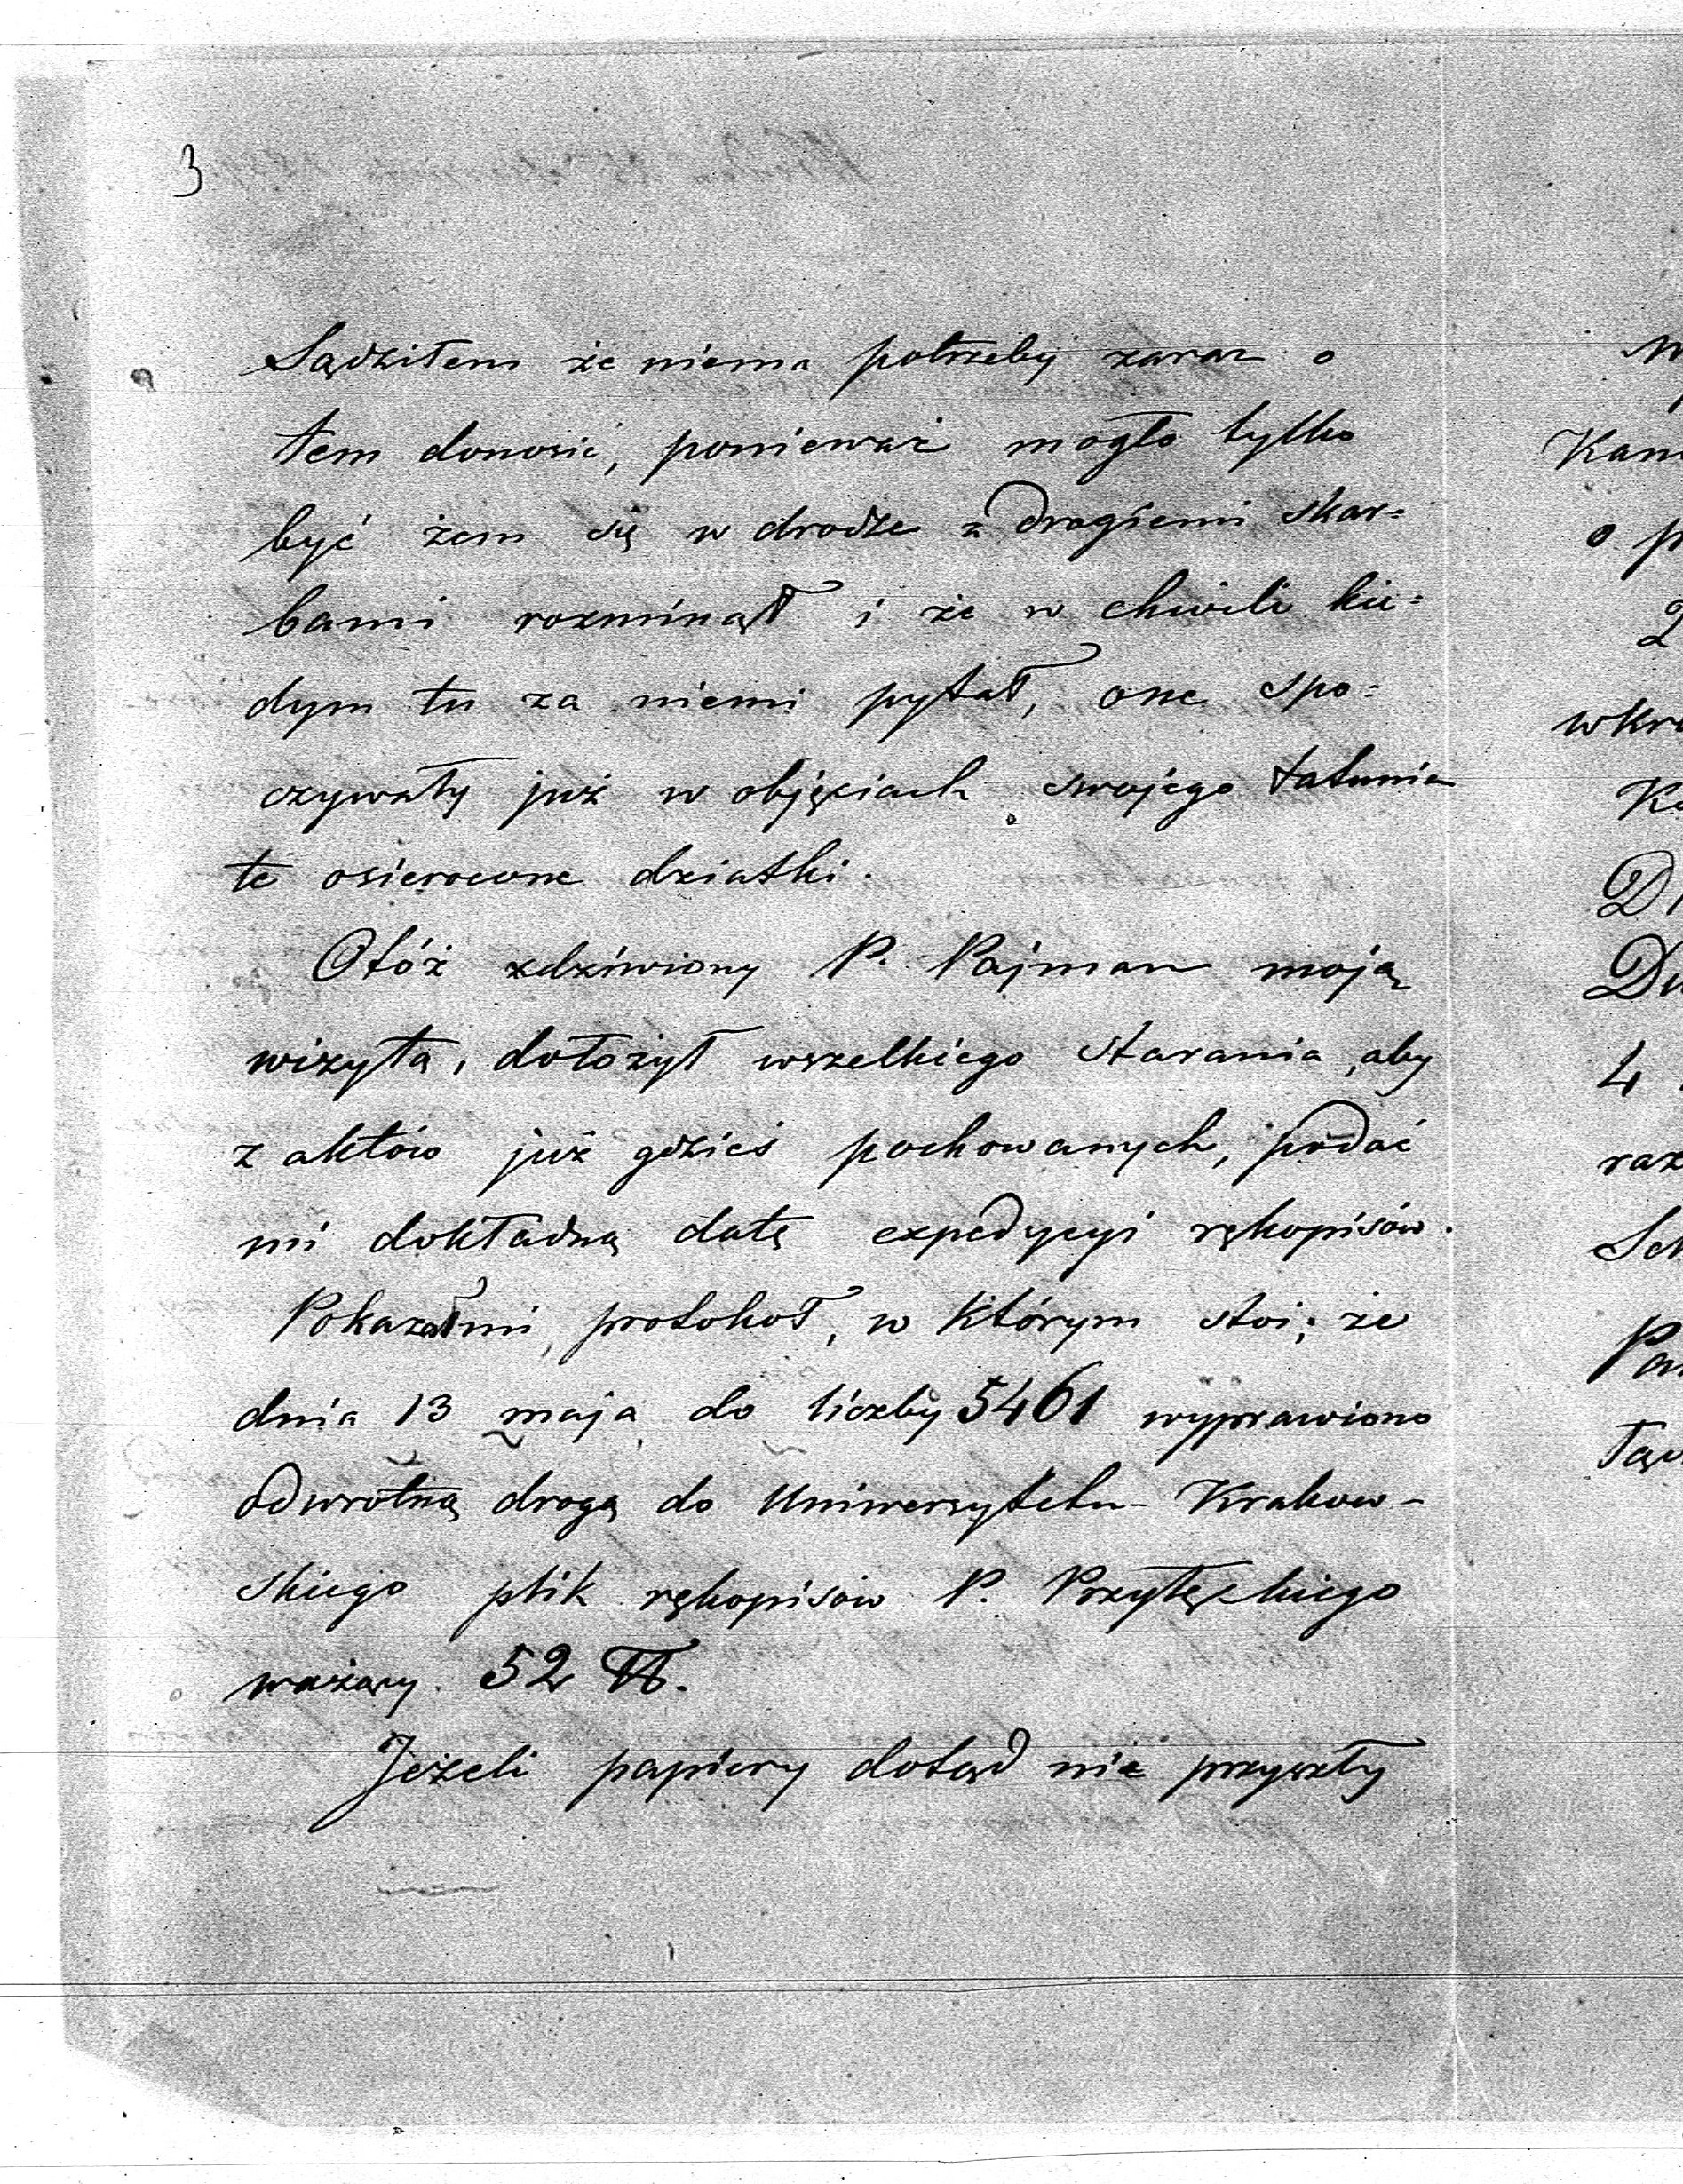 3
Sądziłem że niema potrzeby zaraz o
tem donosić, ponieważ mogło tylko
być żem się w drodze z drogiemi skar=
bami rozminął i że w chwili kie=
dym tu za niemi pytał, one spo=
czywały już w objęciach swojego tatunia
te osierocone dziatki.
Otóż zdziwiony P. Pajman moją
wizytą, dołożył wszelkiego starania, aby
z aktów już gdzieś pochowanych, podać
mi dokładną datę expedycyi rękopisów.
Pokazał mi protokoł, w którym stoi; że
dnia 13 maja do liczby 5461 wyprawiono
odwrotną drogą do Uniwersytetu Krakow-
skiego plik rękopisów P. Przyłęckiego
ważący 52 ℔.
Jeżeli papiery dotąd nie przyszły